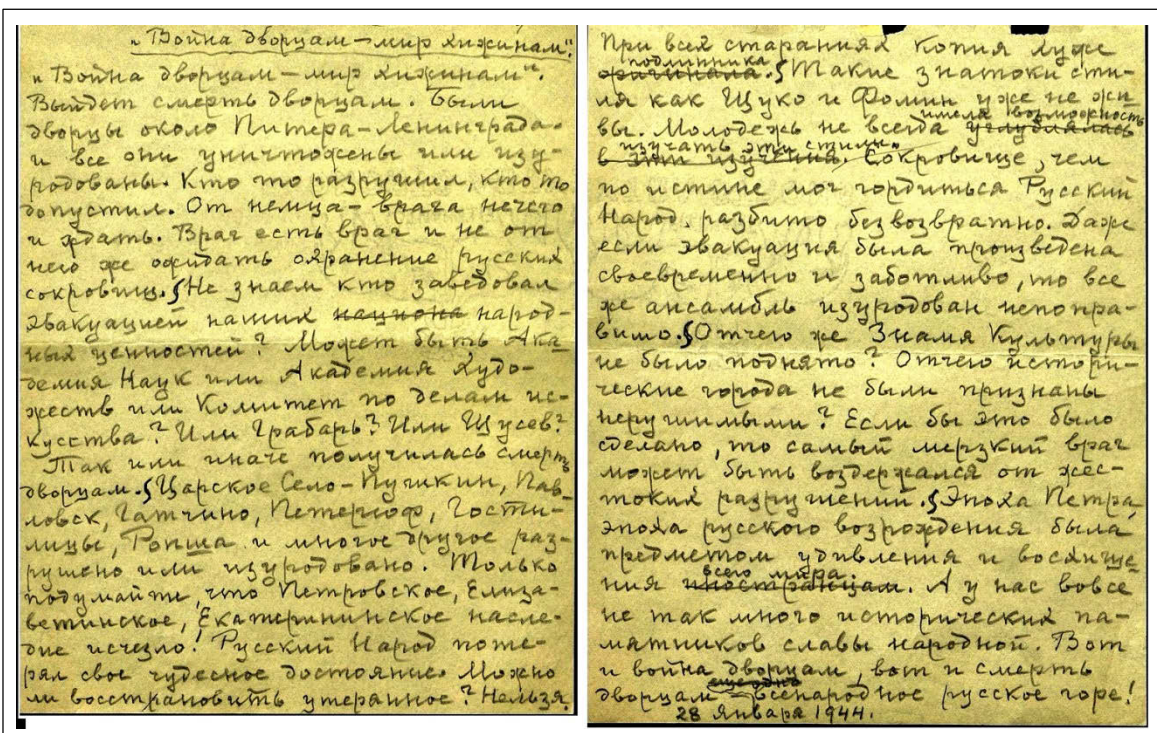 „Война дворцам — мир хижинам".
„Война дворцам — мир хижинам".
Выйдет смерть дворцам. Были
дворцы около Питера-Ленинграда.
и все они уничтожены или изу-
родованы. Кто то разрушил, кто то
допустил. От немца-врага нечего
и ждать. Враг есть враг и не от
него же ожидать охранение русских
сокровищ.§Не знаем кто заведовал
эвакуацией наших национа народ-
ных ценностей? Может быть Ака-
демия Наук или Академия Худо-
жеств или Комитет по делам ис-
кусства? Или Грабарь? Или Щусев?
Так или иначе получилась смерть
дворцам.§Царское Село-Пушкин, Пав-
ловск, Гатчино, Петергоф, Гости-
лицы, Ропша и многое другое раз-
рушено или изуродовано. Только
подумайте, что Петровское, Елиза-
ветинское, Екатерининское насле-
дие исчезло! Русский Народ поте-
рял свое чудесное достояние. Можно
ли восстрановить утерянное? Нельзя.
При всех стараниях копия хуже
подлинника
оригинала.§Такие знатоки сти-
ля как Щуко и Фомин уже не жи
имела возможность
вы. Молодежь не всегда углублялась
изучать эти стили.
в эти изучения. Сокровище, чем
по истине мог гордиться Русский
Народ, разбито безвозвратно. Даже
если эвакуация была произведена
своевременно и заботливо, то все
же ансамбль изуродован непопра-
вимо.§Отчего же Знамя Культуры
не было поднято? Отчего истори-
ческие города не были признаны
нерушимыми? Если бы это было
сделано, то самый мерзкий враг
может быть воздержался от жес-
токих разрушений.§Эпоха Петра,
эпоха русского возрождения была
предметом удивления и восхище
всего мира.
ния иностранцам. А у нас вовсе
не так много исторических па-
мятников славы народной. Вот
и война дворцам, вот и смерть
еще одно
дворцам — всенародное русское горе!
28 Января 1944.